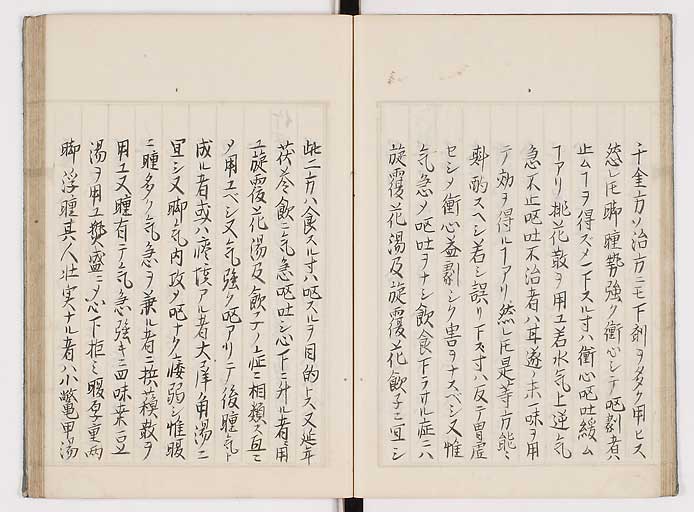 千金方ノ治方ニモ下剤ヲ多ク用ヒス
然レ𪜈脚腫勢強ク衝心シテ呕劇者ハ
止ムヿヲ得ズメ下スルヿハ衝心呕吐緩ム
ヿアリ桃花散ヲ用ユ若水気上逆気
急不止呕吐不治者ハ甘遂末一味ヲ用
テ効ヲ得ルヿアリ然レ𪜈是等方能ミ
斟酌スヘシ若シ誤リ下ス寸ハ反テ胃虚
セシメ衝心益劇シク害ヲナスベシ又惟
気急メ呕吐ヲナシ飲食下ラサル症ニハ
旋覆花湯及旋覆花飲子ニ宜シ
此二方ハ食スル寸ハ呕スルヲ目的トス又延年
茯苓飲ニ気急呕吐シ心下ニ升ル者ニ用
ユ旋覆花湯及飲子ノ症ニ相類ス互ニ
メ用ユベシ又気強ク呕アリテ後腫気ト
成ル者或ハ痰アル者大犀角湯ニ
宜シ又脚気内攻メ呕ナク痿弱シ惟腹
ニ腫多ク気急ヲ兼ル者ニ散ヲ
用ユ又腫有テ気急強キニ四味業豆
湯ヲ用ユ盛ニメ心下拒ミ暖重両
脚浮腫其人壮実ナル者ハ小鱉甲湯